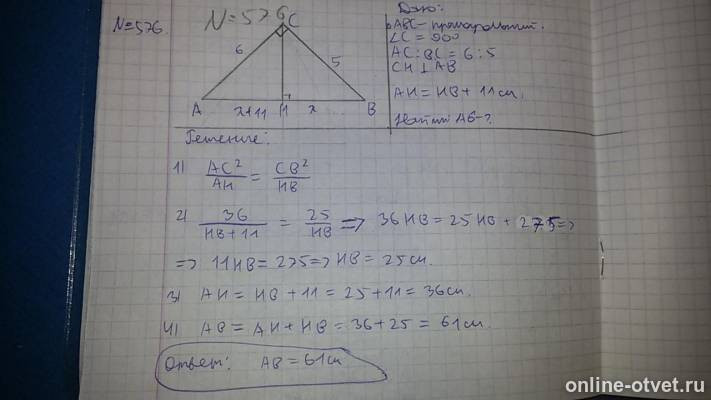 N=576.
N=576
C
6
5
A
x+11
H
x
B
Дано:
ABC - прямоугольный.
∠C = 90°
AC:BC = 6:5
CH ⊥ AB
AH = HB + 11 см.
Найти AB-?
Решение:
1) AC²/AH = CB²/HB
2) 36/HB+11 = 25/HB => 36HB = 25HB + 275 =>
=> 11HB = 275 => HB = 25 см.
3) AH = HB + 11 = 25+11 = 36 см.
4) AB = AH + HB = 36 + 25 = 61 см.
Ответ: AB = 61 см
online-otvet.ru